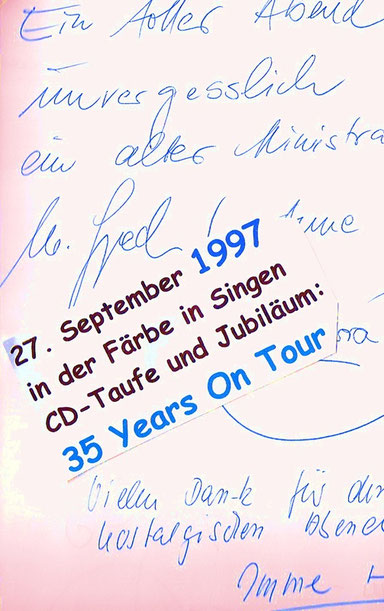 Ein toller Abend
unvergesslich
ein alter Ministra
27. September 1997
in der Färbe in Singen
CD-Taufe und Jubiläum:
35 Years On Tour
Vielen Dank für den
nostalgischen Abend
Imme H